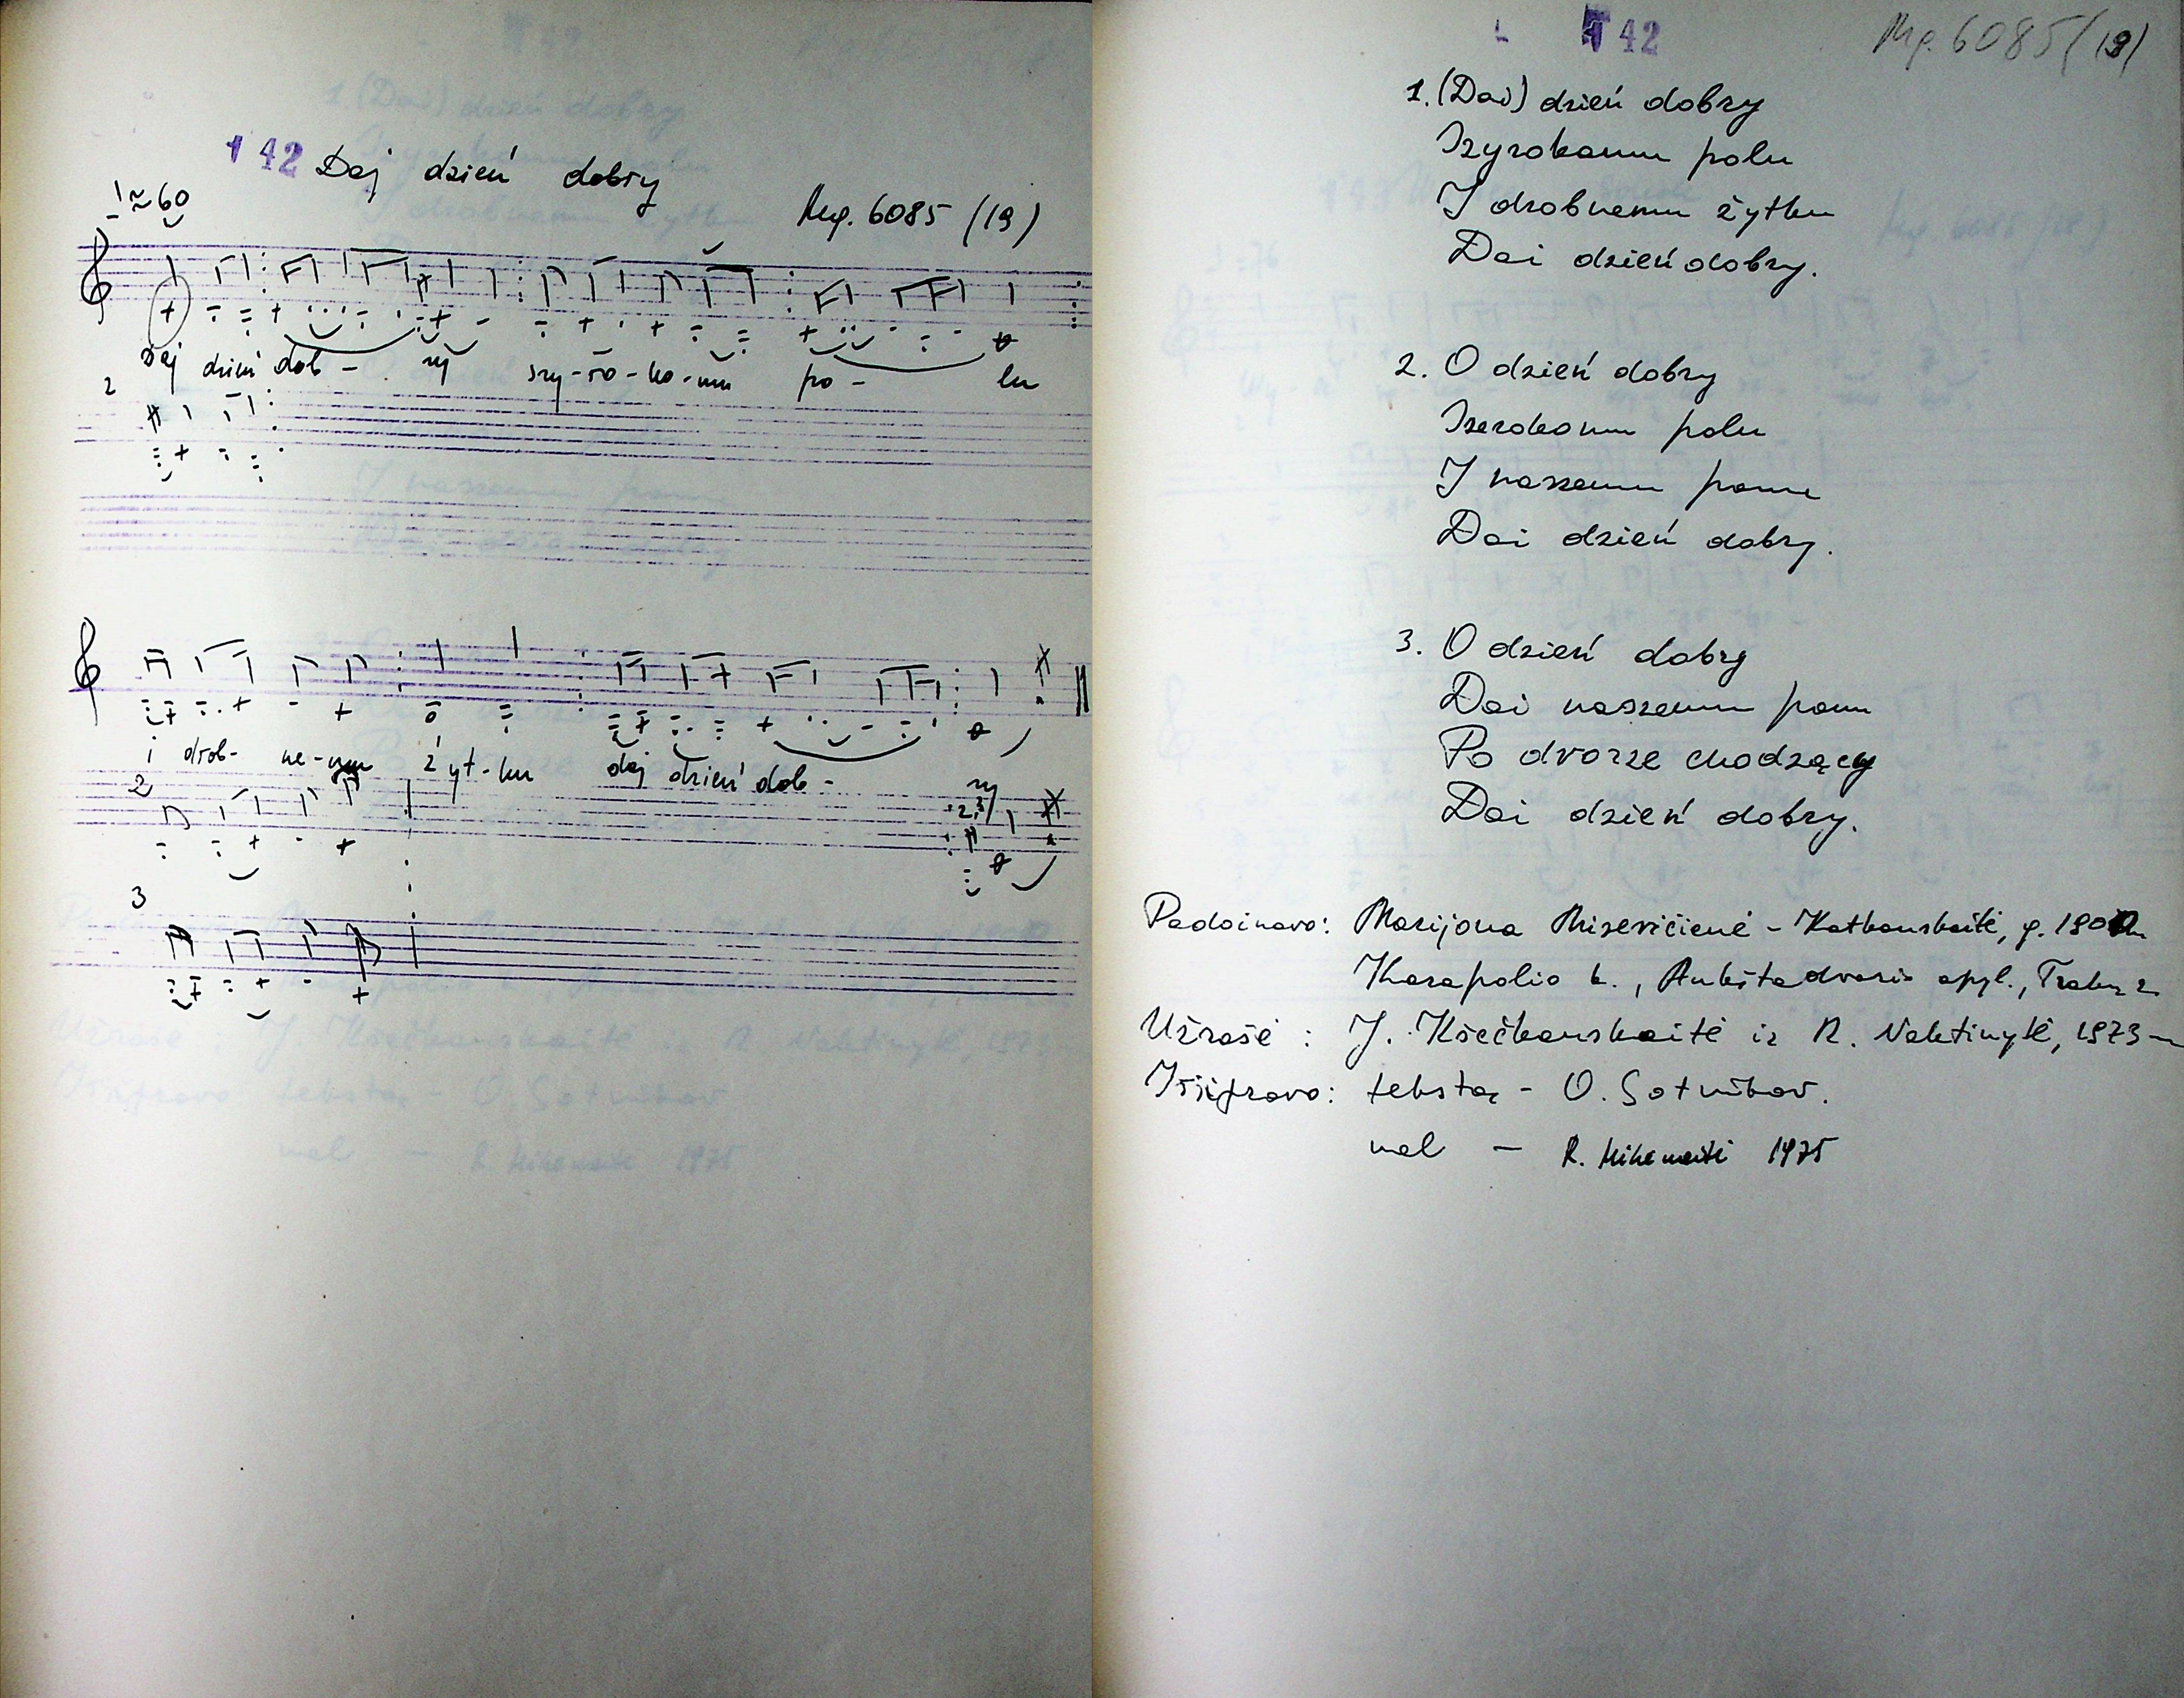 142 Daj dzień dobry
≈60
Mg. 6085 (19)
Daj dzień dob - ry szy-ro-ko-mu po - lu
2
i drob- ne-mu żyt-ku daj dzień dob - ry
2
2,3
3
142
Mg. 6085 (19)
1. (Dai) dzień dobry
Szyrokamu polu
I drobnemu żytku
Dai dzień dobry.
2. O dzień dobry
Szerokomu polu
I naszemu panu
Dai dzień dobry.
3. O dzień dobry
Dai naszemu panu
Po dvorze chodzący
Dai dzień dobry.
Padainavo: Marijona Misevičienė - Katkauskaitė, g.
Karapolio k., Aukštadvario apyl., Trakų r.
Užrašė : J. Kšečkauskaitė ir R. Naktinytė, 1973 m
Iššifravo: tekstą - O. Sotnikov.
mel — R. Mikenaitė 1975